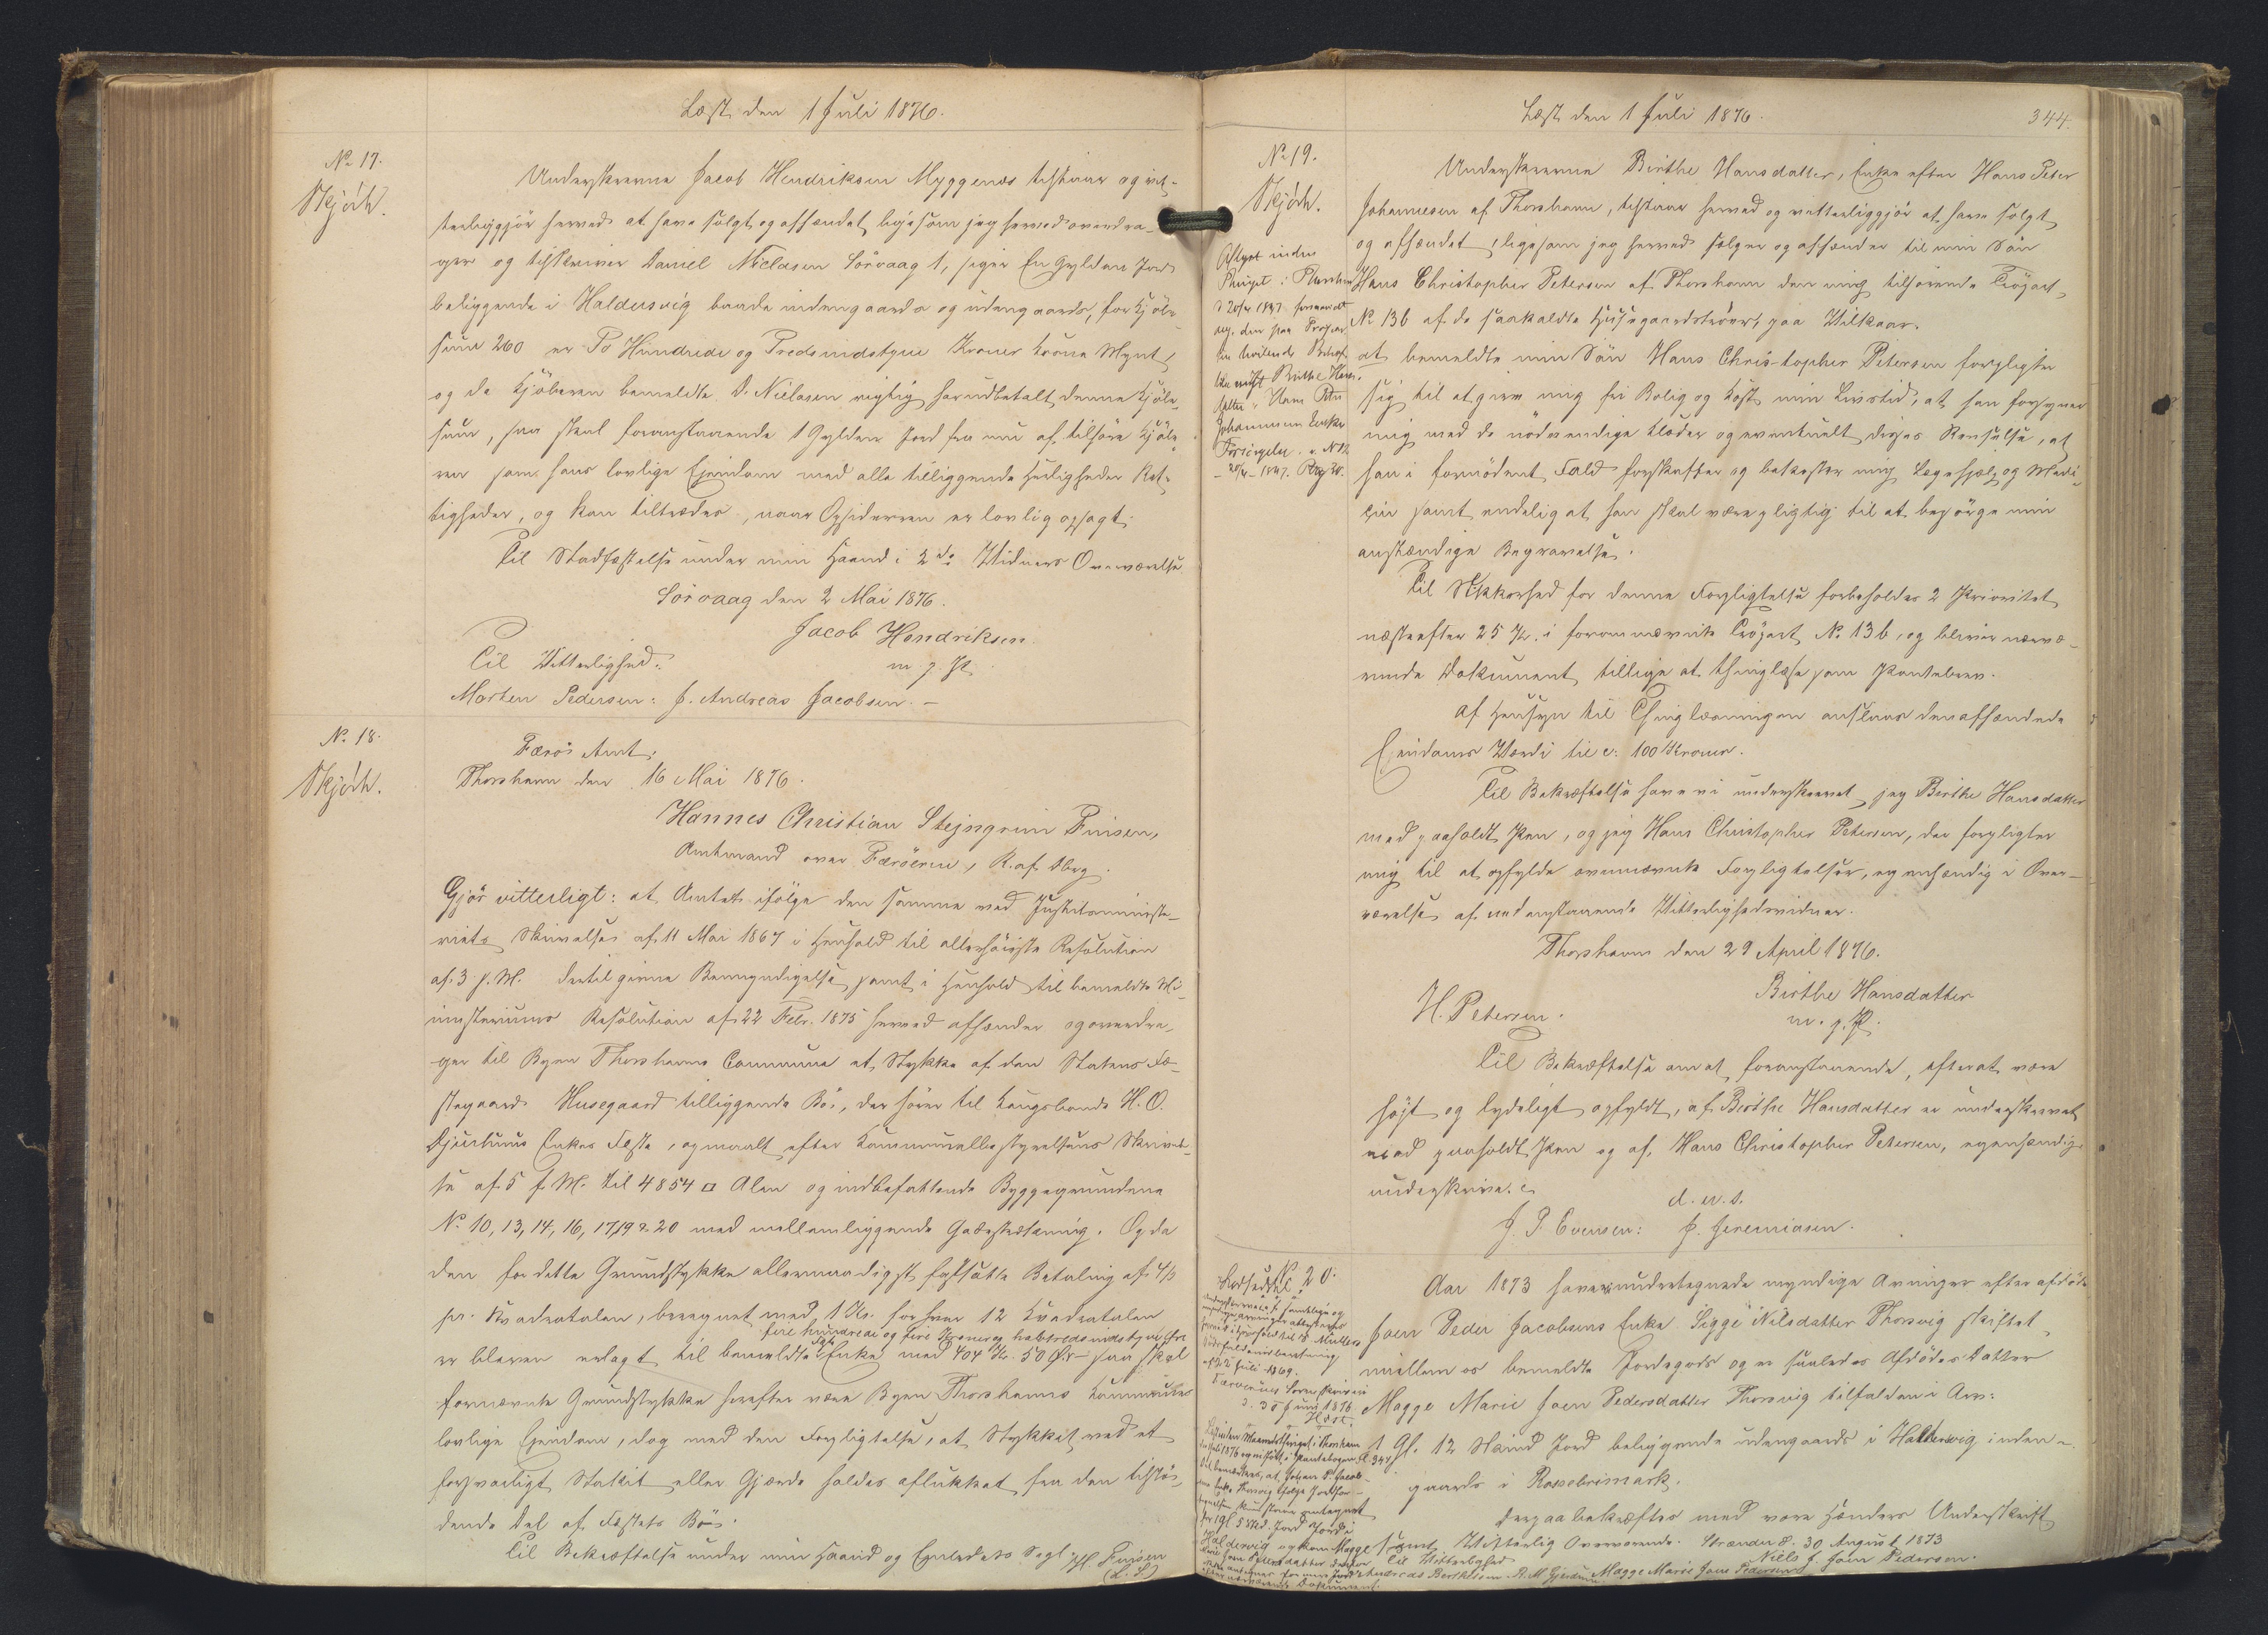 Læst den 1 Juli 1876.
No 17.
Skjöde.
Underskrevne Jacob Hendriksen Myggenæs tilstaar og vit-
terliggjör herved at have solgt og afhændet ligesom jeg herved overdra-
ger og tilskriver Daniel Niclasen Sörvaag 1, siger En Gylden Jord
beliggende i Haldersvig baade indengaards og udengaards, for Kjöbe
sum 260 er To Hundrede og Tredsindstyve Kroner Krone Mynt,
og da Kjöberen bemeldte D. Niclasen rigtig har udbetalt denne Kjöbe
sum, saa skal foranstaaende 1 Gylden Jord fra nu af tilhöre Kjöbe
ren som hans lovlige Ejendom med alle tilliggende Herligheder Ret-
tigheder, og kan tiltrædes, naar Opsidderen er lovlig opsagt.
Til Stadfæstelse under min Haand i 2de Vidners Overværelse
Sörvaag den 2 Mai 1876.
Jacob Hendriksen
m. p. P.
Til Vitterlighed:
Morten Pedersen: J. Andreas Jacobsen. –
No. 18.
Skjöde.
Færö Amt.
Thorshavn den 16 Mai 1876.
Hannes Christian Stejngrim Finsen,
Amtmand over Færöerne, R. af Dbrg.
Gjör vitterligt: at Amtet ifölge den samme ved Justitsministe-
riets Skrivelse af 11 Mai 1867 i Henhold til allerhöieste Resolution
af 3 s. M. dertil givne Bemyndigelse samt i Henhold til bemeldte Mi-
nisteriums Resolution af 22 Febr. 1875 herved afhænder og overdra-
ger til Byen Thorshavns Commune et Stykke af den Statens Fæ-
stegaard Husegaard tilliggende Bö, der hörer til Kongsbonde H. O.
Djurhuus Enkes Fæste, opmaalt efter Kommunalbestyrelsens Skrivel-
se af 5 f. M. til 4854 □ Alen og indbefattende Byggegrundene
No. 10, 13, 14, 16, 17, 19 & 20 med mellemliggende Gadestrækning. Og da
den for dette Grundstykke allernaadigst fastsatte Betaling af 4/3
pr. Kvadratalen, beregnet med 1 Kr. for hver 12 Kvadratalen
fire hundrede og fire Kroner og halvtredsindstyve Öre
er bleven erlagt til bemeldte Enke med 404 Kr. 50 Öre – saa skal
fornævnte Grundstykke herefter være Byen Thorshavns Kommunes
lovlige Ejendom, dog med den Forpligtelse, at Stykket ved et
forsvarligt Stakit eller Gjærde holdes aflukket fra den tilstö-
dende Del af Fæstets Bö.
Til Bekræftelse under min Haand og Embedets Segl. H. Finsen
(L. S.)
Læst den 1 Juli 1876.
344.
No 19.
Skjöde.
Underskrevne Birthe Hansdatter, Enke efter Hans Peter
Johannesen af Thorshavn, tilstaar herved og vitterliggjör at have solgt
og afhændet, ligesom jeg herved sælger og afhænder til min Sön
Hans Christopher Petersen af Thorshavn den mig tilhörende Tröpart,
No 136 af de saakaldte Husegaardströer, paa Vilkaar,
at bemeldte min Sön Hans Christopher Petersen forpligter
sig til at give mig fri Bolig og Kost min Livstid, at han forsyner
mig med de nödvendige Klæder og eventuelt disses Renselse, at
han i fornödent Fald forskaffer og bekoster mig Lægehjælp og Medi-
cin samt endelig at han skal være pligtig til at besörge min
anstændige Begravelse.
Til Sikkerhed for denne Forpligtelse forbeholdes 2 Prioritet
næstefter 25 Kr. i forannævnte Tröpart No. 136, og bliver nærvæ-
rende Dokument tillige at thinglæse som Pantebrev.
Af Hensyn til Thinglæsningen anslaaes den afhændede
Ejendoms Værdi til c: 100 Kroner.
Til Bekræftelse have vi underskrevet, jeg Birthe Hansdatter
med paaholdt Pen, og jeg Hans Christopher Petersen, der forpligter
mig til at opfylde ovennævnte Forpligtelser, egenhændig i Over-
værelse af undenstaaende Vitterlighedsvidner.
Thorshavn den 29 April 1876.
H. Petersen.
Birthe Hansdatter
m. p. P.
Til Bekræftelse om at foranstaaende, efter at være
höjt og tydeligt oplæst, af Birthe Hansdatter er underskrevet
med paaholdt Pen og af Hans Christopher Petersen, egenhændig
underskrive.
d. u. s.
J. P. Evensen: J. Jeremiasen.
Aflyst inden
Thinget i Thorshavn
No. 20.
Aar 1873 have undertegnede myndige Arvinger efter afdöde
Joen Peder Jacobsens Enke Sigge Nilsdatter Thorsvig skiftet
mellem os bemeldte Jordegods og er saaledes Afdödes Datter
Magge Marie Joen Pedersdatter Thorsvig tilfalden i Arv:
1 Gl. 12 Skind Jord beliggende udengaards i Haldersvig inden-
gaards i
Færöernes Sorenskriveri
d. 30 Juni 1876
Derpaa bekræftes med vore Hænders Underskrift
samt Vitterlig Overværende. Strænder d. 30 August 1873
Til Vitterlighed
Niels J. Joen Pedersen.
Magge Marie Joen Pedersen